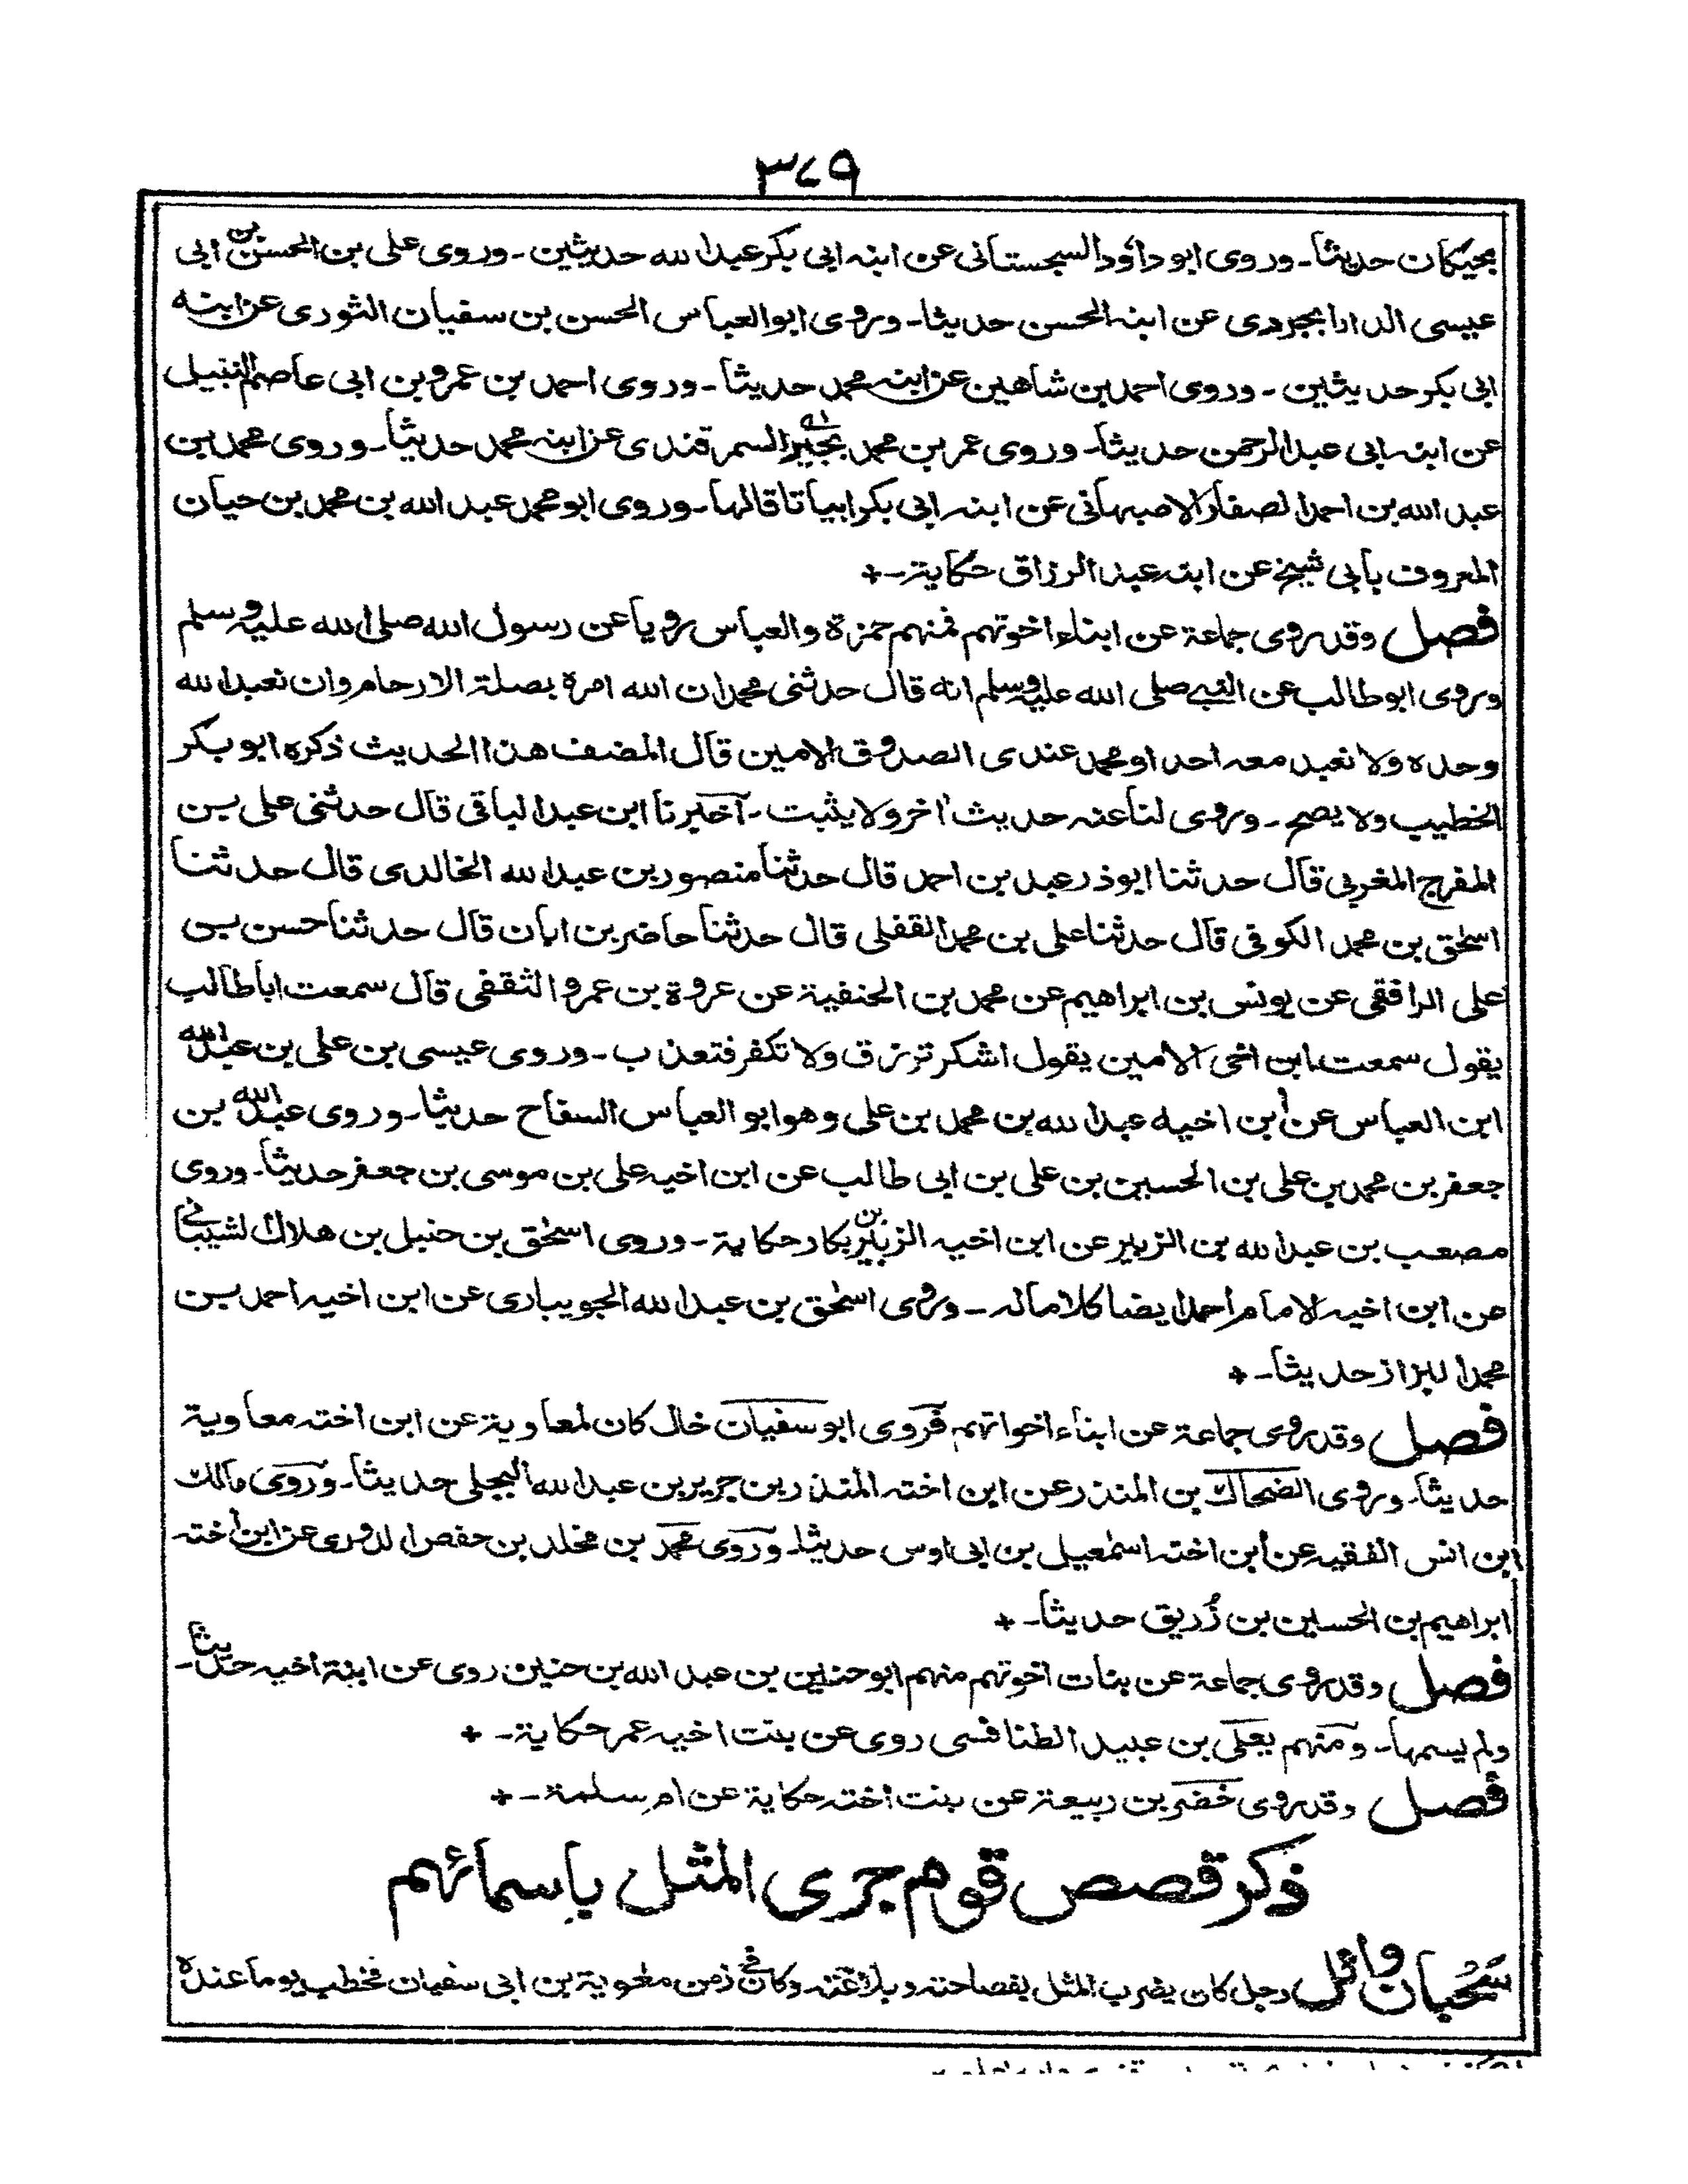 ٣٤٩
بحيكان حديثا ـ وروى ابو داؤد السجستانى عن ابنه ابى بكر عبد الله حديثين ـ وروى على بن الحسن بن ابى
عيسى الدارابجردى عن ابنه الحسن حديثا ـ وروى ابو العباس الحسن بن سفيان الثورى عن ابنه
ابى بكر حديثين ـ وروى احمد بن شاهين عن ابنه محمد حديثا ـ وروى احمد بن عمرو بن ابى عاصم النبيل
عن ابنه ابى عبد الرحمن حديثا ـ وروى عمر بن محمد بجير السمرقندى عن ابنه محمد حديثا ـ وروى محمد بن
عبد الله بن احمد الصفار الاصبهانى عن ابنه ابى بكر ابياتا قالها ـ وروى ابو محمد عبد الله بن محمد بن حيان
المعروف بابى شيخ عن ابنه عبد الرزاق حكاية ـ +
فصل وقد روى جماعة عن ابناء اخوتهم فمنهم حمزة والعباس رويا عن رسول الله صلى الله عليه وسلم
وروى ابو طالب عن النبى صلى الله عليه وسلم انه قال حدثنى محمد ان الله امره بصلة الارحام وان نعبد الله
وحده ولا نعبد معه احدا ومحمد عندى الصدوق الامين قال المصنف هذا الحديث ذكره ابو بكر
الخطيب ولا يصح ـ وروى لنا عنه حديث اخر ولا يثبت ـ آخبرنا ابن عبد الباقى قال حدثنى على بن
المفرج المغربى قال حدثنا ابو ذر عبد بن احمد قال حدثنا منصور بن عبد الله الخالدى قال حدثنا
اسحٰق بن محمد الكوفى قال حدثنا على بن محمد القفلى قال حدثنا حاضر بن ابان قال حدثنا حسن بن
على الرافقى عن يونس بن ابراهيم عن محمد بن الحنفية عن عروة بن عمرو الثقفى قال سمعت ابا طالب
يقول سمعت ابن اخى الامين يقول اشكر ترزق ولا تكفر فتعذب ـ وروى عيسى بن على بن عبد الله
ابن العباس عن ابن اخيه عبد الله بن محمد بن على وهو ابو العباس السفاح حديثا ـ وروى عبد الله بن
جعفر بن محمد بن على بن الحسين بن على بن ابى طالب عن ابن اخيه على بن موسى بن جعفر حديثا ـ وروى
مصعب بن عبد الله بن الزبير عن ابن اخيه الزبير بن بكار حكاية ـ وروى اسحٰق بن حنبل بن هلال الشيبانى
عن ابن اخيه الامام احمد ايضا كلاما له ـ وروى اسحٰق بن عبد الله الجويبارى عن ابن اخيه احمد بن
محمد البزاز حديثا ـ +
فصل وقد روى جماعة عن ابناء اخواتهم فروى ابو سفيان خال كان لمعاوية عن ابن اخته معاوية
حديثا ـ وروى الضحاك بن المنذر عن ابن اخته المنذر بن جرير بن عبد الله البجلى حديثا ـ وروى مالك
ابن انس الفقيه عن ابن اخته اسمٰعيل بن ابى اوس حديثا ـ وروى محمد بن مخلد بن حفص الدورى عن ابن اخته
ابراهيم بن الحسين بن زُريق حديثا ـ +
فصل وقد روى جماعة عن بنات اخوتهم منهم ابو حنين بن عبد الله بن حنين روى عن ابنة اخيه حديثا ـ
ولم يسمها ـ ومنهم يعلى بن عبيد الطنافسى روى عن بنت اخيه عمر حكاية ـ +
فصل وقد روى خضر بن ربيعة عن بنت اخته حكاية عن ام سلمة ـ +
ذكر قصص قوم جرى المثل باسمائهم
سَحْبان وائل رجل كان يضرب المثل بفصاحته وبلاغته وكان فى زمن معٰوية بن ابى سفيان فخطب يوما عنده